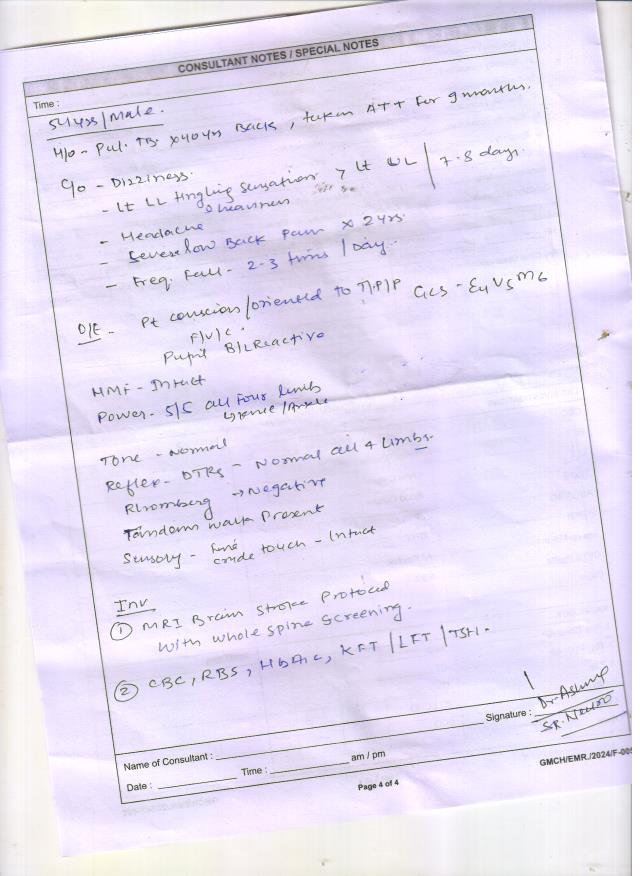 CONSULTANT NOTES / SPECIAL NOTES
Time :
54 yrs / Male.
H/o - Pul. TB x 40 yrs Back, taken ATT for 9 months.
C/o - Dizziness.
- Lt LL tingling sensation > Lt UL | 7-8 days.
& heaviness
- Headache
- Severe low Back pain x 2 yrs.
- Freq. Fall - 2-3 times / day.
O/E - Pt conscious / oriented to T/P/P GCS - E4V5M6
F/V/C.
Pupil B/L Reactive
HMF - Intact
Power - 5/5 all four limbs
Tone - Normal
Reflex - DTRs - Normal all 4 Limbs.
Rhomberg → Negative
Tandem walk Present
Sensory - fine
crude touch - Intact
Inv
① MRI Brain Stroke Protocol
with whole spine screening.
② CBC, RBS, HbA1c, KFT / LFT / TSH.
Signature :
SR. Neuro
Name of Consultant :
Date : Time : am / pm
Page 4 of 4
GMCH/EMR./2024/F-005